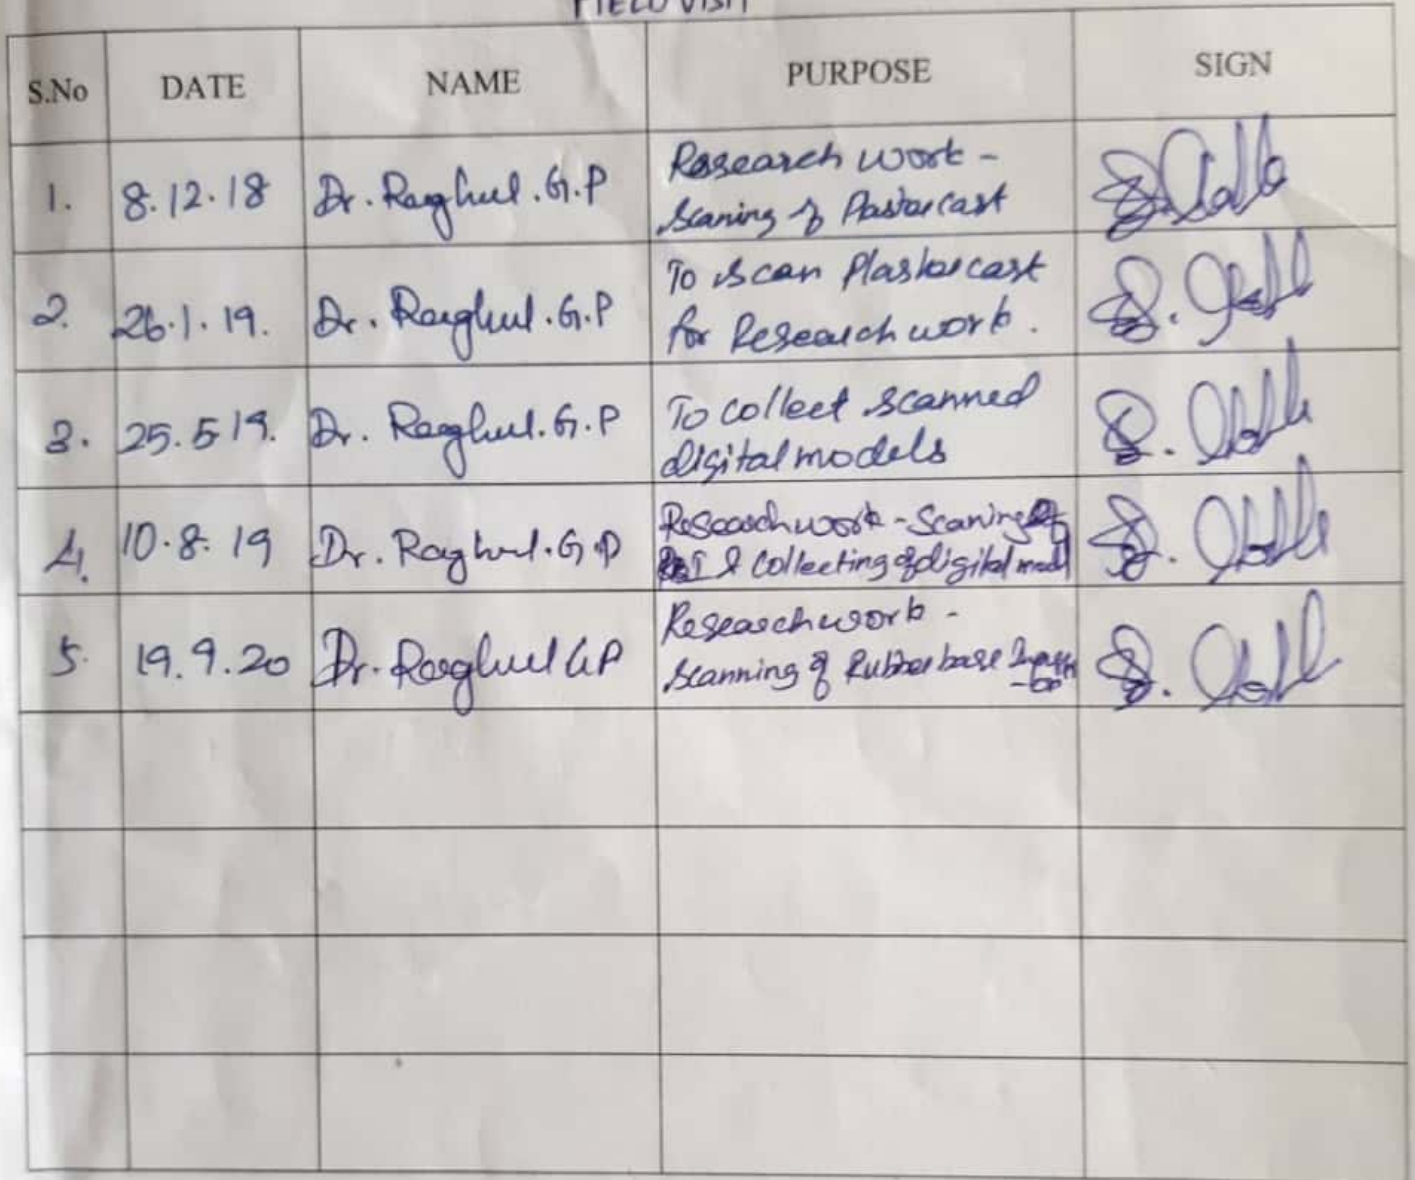 FIELD VISIT
S.No DATE NAME PURPOSE SIGN
1. 8.12.18 Dr. Raghul.G.P Research work -
Scaning of Plastorcast
2. 26.1.19. Dr. Raghul.G.P To Scan Plastorcast
for Research work.
3. 25.5 19. Dr. Raghul.G.P To collect scanned
digital models
4. 10.8.19 Dr. Raghul.G.P Research work - Scaning of
I & Collecting of digital
5. 19.9.20 Dr. Raghul G.P Research work -
Scanning of Rubber base